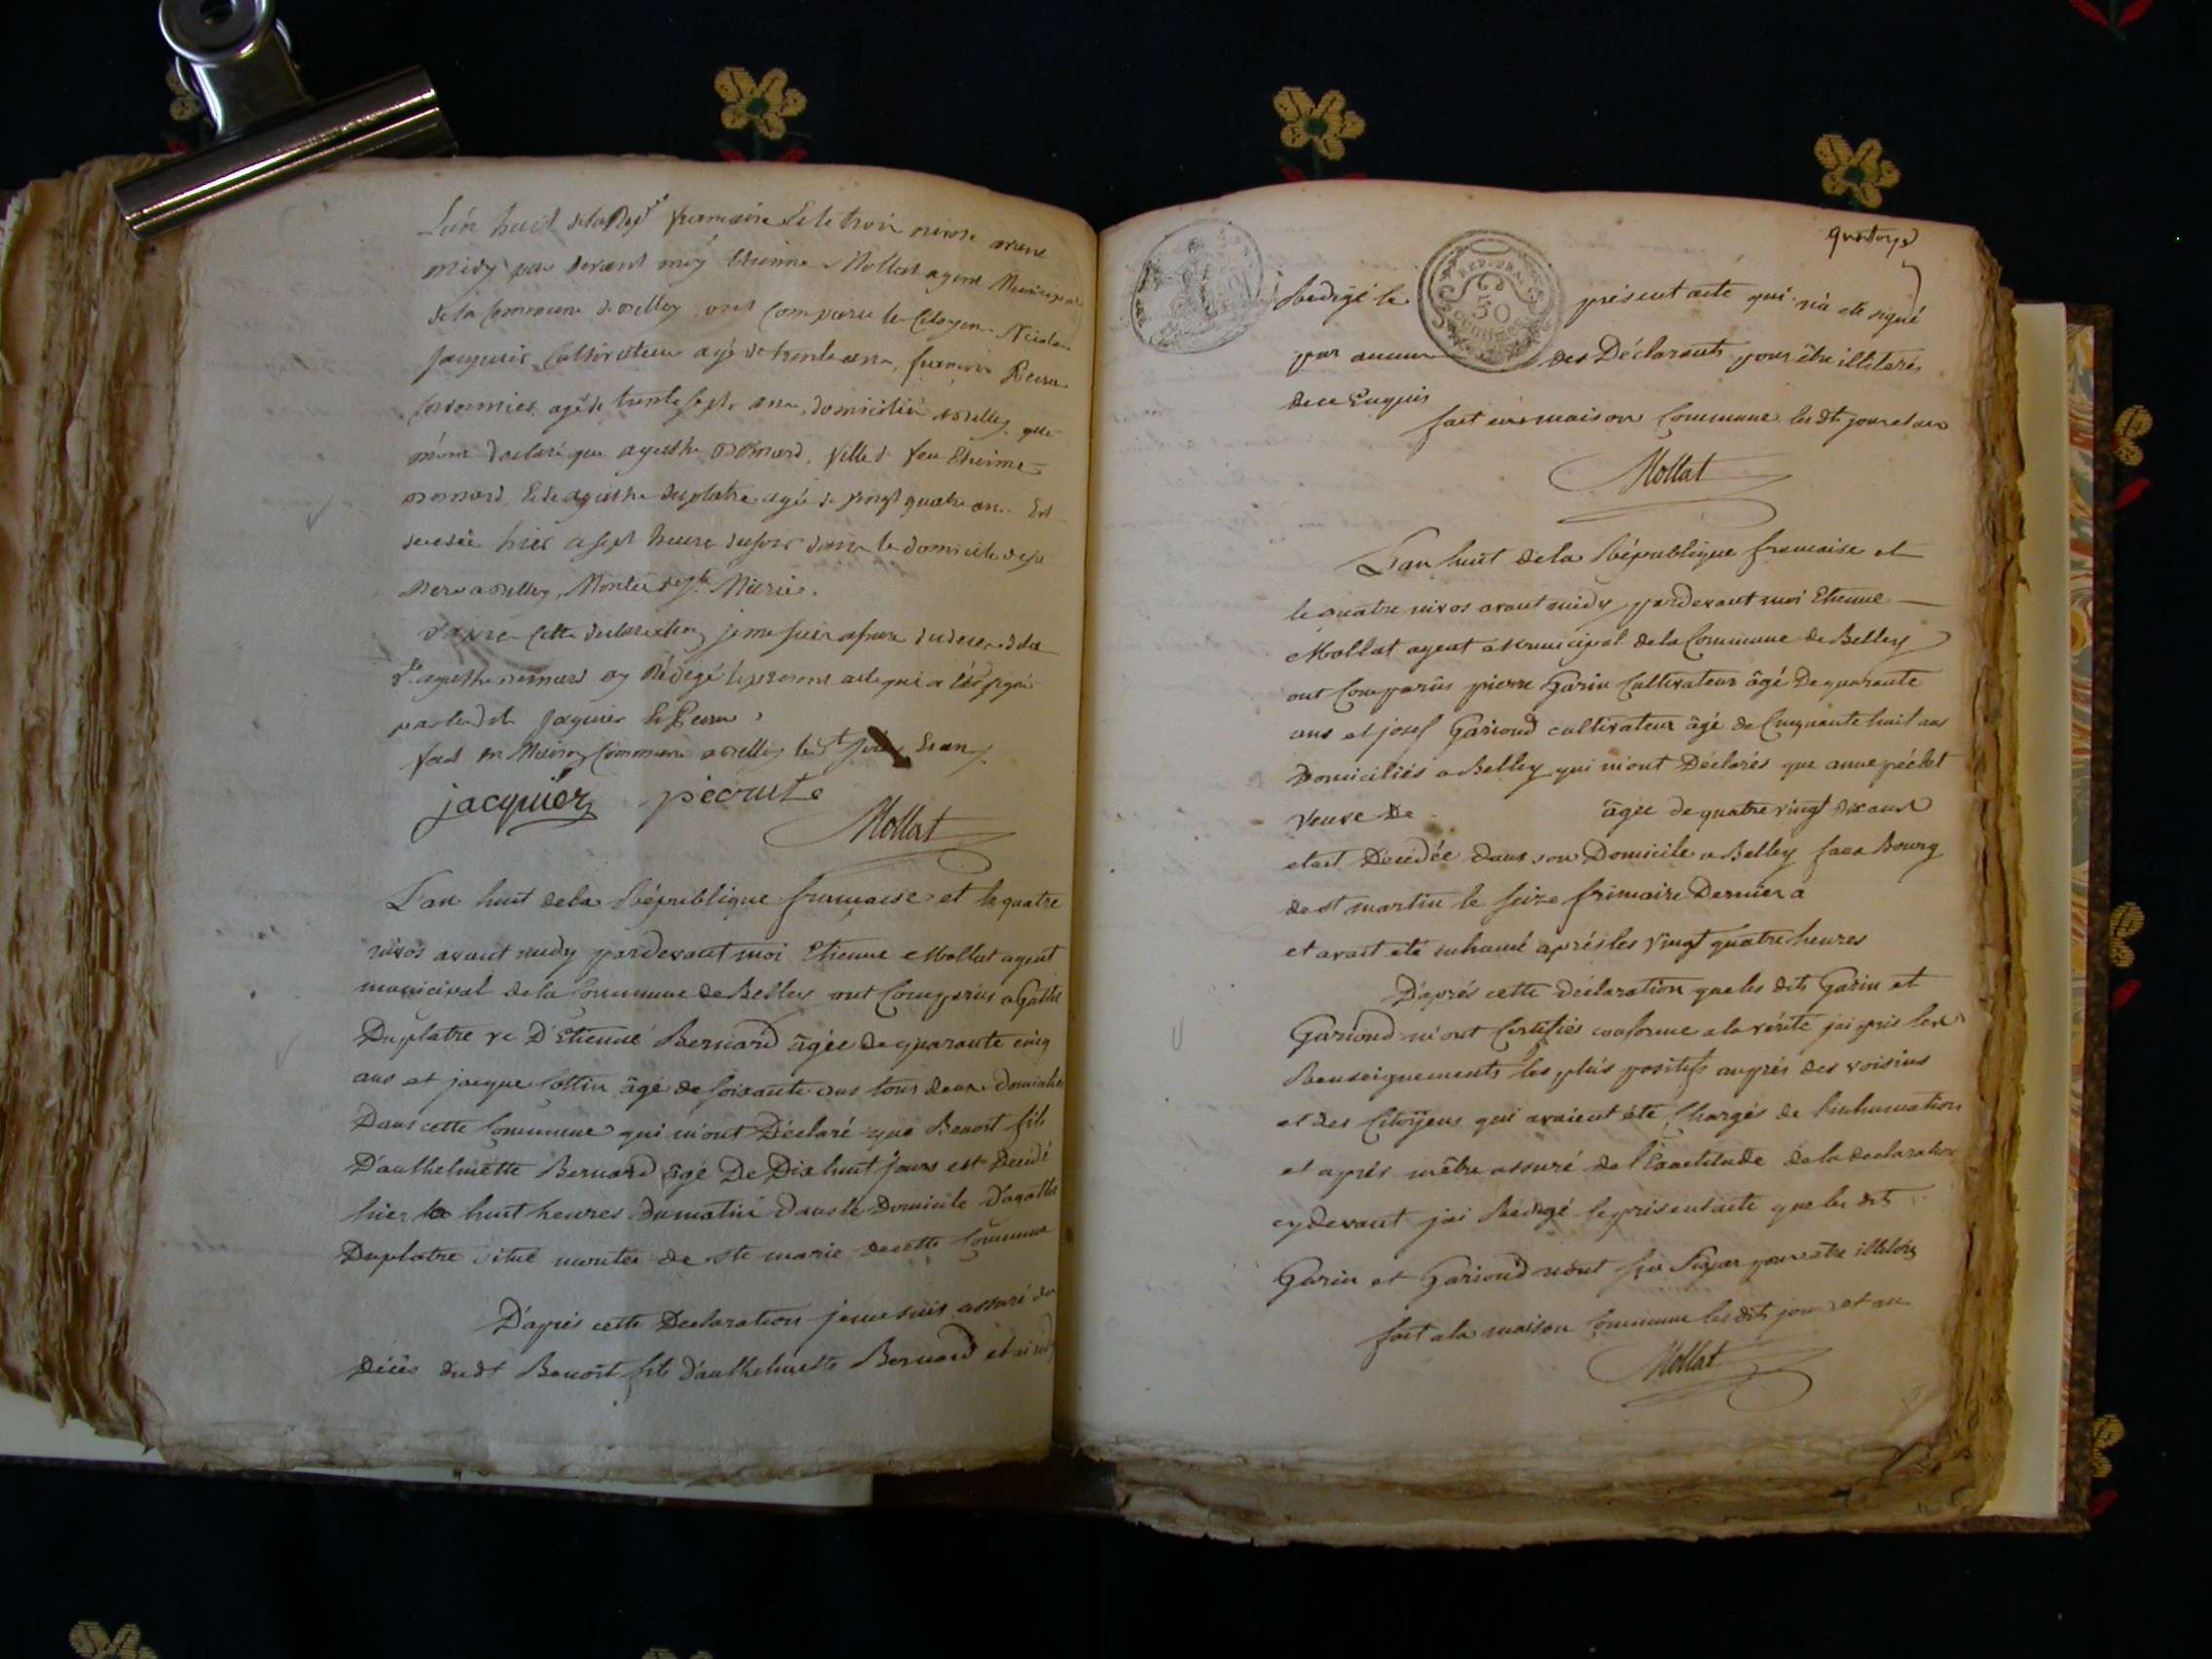 L'an huit de la Rep. francaise & le trois nivose avant
midy par devant moy Etienne Mollat agent Municipal
de la Commune de Belley ont Comparu le Citoyens Nicolas
Jacquier Cultivateur agé de trente ans, francois
Cordonnier agé de trente sept ans, domicilié a Belley qui
m'ont declaré que agathe Bernard, fille de feu Etienne
Bernard & de agathe duplatre agée de vingt quatre ans Est
decedée hier a sept heure du soir dans le domicile de sa
Mere a Belley, Montée de ste Marie.
D'apres Cette declaration je me suis assuré du deces de la
dte agathe Bernard ay Rédigé le present acte qui a été signé
par les dts Jaquier &
fait en Maison Commune a Belley les dt jour & an
jacquier pécrute
Mollat
L'an huit de la République francaise et le quatre
nivos avant midy pardevant moi Etienne Mollat agent
municipal de la Commune de Belley ont Comparus aGathe
Duplatre ve D'Etienne Bernard âgée de quarante cinq
ans et jacque Cottin âgé de soixante ans tous deux domiciliés
Dans cette Commune qui m'ont Déclaré que Benoit fils
D'anthelmette Bernard âgé De Dix huit jours est Decédé
hier a huit heures du matin dans le Domicile d'agathe
Duplatre situé montée de ste marie de cette Commune
D'apres cette Declaration je me suis assuré du
Décès dudt Benoit fils d'anthelmette Bernard et ai
quatorze
Rédigé le présent acte qui n'a ete signé
REP. FRA.
50
CENTIMES
par aucun des Déclarants pour être illiterés
de ce Enquis
fait en maison Commune les dt jour et an
Mollat
L'an huit de la République francaise et
le quatre nivos avant midy pardevant moi Etienne
Mollat agent Municipal de la Commune de Belley
ont Comparûs pierre Garin Cultivateur âgé De quarante
ans et josef Gariond cultivateur âgé de Cinquante huit ans
Domiciliés a Belley qui m'ont Déclarés que anne péclet
veuve De âgée de quatre vingt dix ans
etait Décédée dans son Domicile a Belley faux Bourg
de st martin le seize frimaire Dernier a
et avait ete inhumé aprés les vingt quatre heures
D'aprés cette déclaration que les dts Garin et
Gariond m'ont Certifiés conforme a la vérité jai pris les
Renseignements les plus positifs auprés des voisins
et des Citoÿens qui avaient été Chargés de l'inhumation
et aprés mêtre assuré de l'Exactitude de la declaration
cy devant jai Rédigé le présent acte que les dts
Garin et Gariond n'ont su Signer pour etre illiterés
fait a la maison Commune les dits jour et an
Mollat